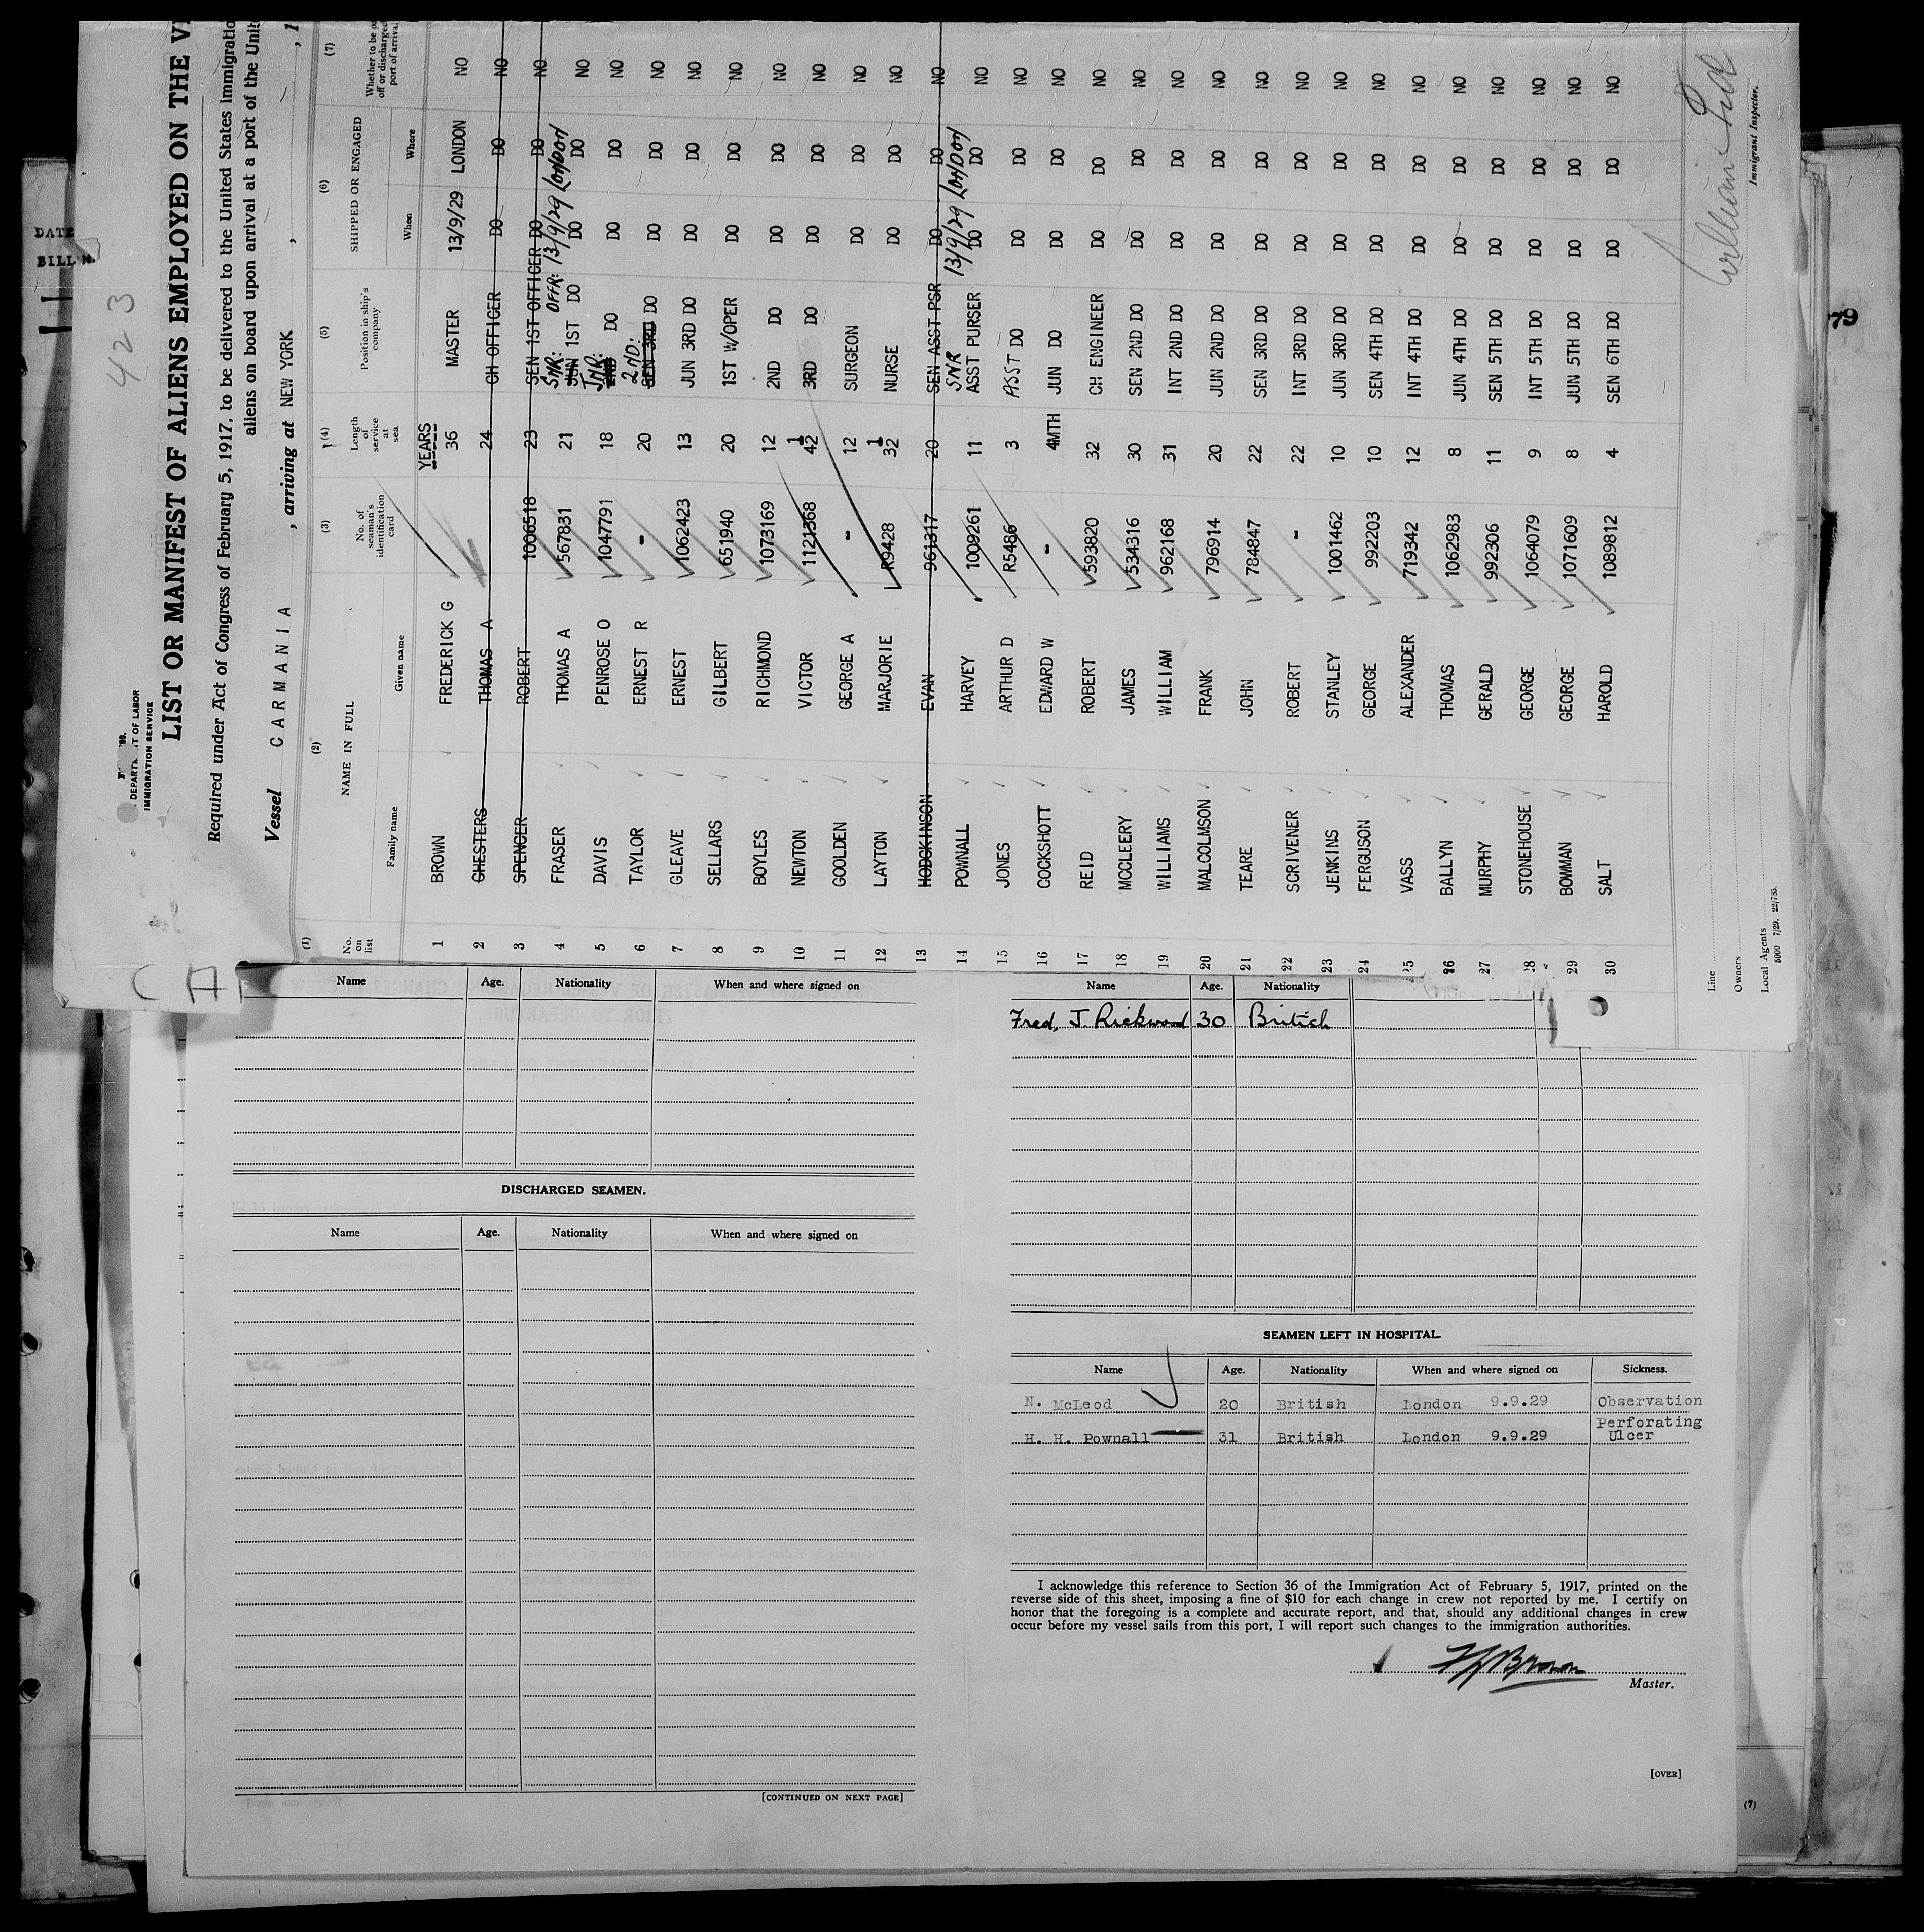 423
DEPARTMENT OF LABOR
IMMIGRATION SERVICE
LIST OR MANIFEST OF ALIENS EMPLOYED ON THE
Required under Act of Congress of February 5, 1917, to be delivered to the United States immigratio
aliens on board upon arrival at a port of the Unit
Vessel CARMANIA , arriving at NEW YORK , , 1
(1) (2) (3) (4) (5) (6) (7)
No. on list NAME IN FULL Family name Given name No. of seaman's identification card Length of service at sea Position in ship's company SHIPPED OR ENGAGED When Where Whether to be off or discharged port of arrival
YEARS
1 BROWN FREDERICK G 36 MASTER 13/9/29 LONDON NO
2 CHESTERS THOMAS A 24 CH OFFICER DO DO NO
3 SPENCER ROBERT 1006518 23 SEN 1ST OFFICER DO DO NO
SNR: OFFR: 13/9/29 London
4 FRASER THOMAS A 567831 21 JUN 1ST DO DO DO NO
JNR:
5 DAVIS PENROSE O 1047791 18 2ND DO DO DO NO
2ND:
6 TAYLOR ERNEST R - 20 SEN 3RD DO DO DO NO
7 GLEAVE ERNEST 1062423 13 JUN 3RD DO DO DO NO
8 SELLARS GILBERT 651940 20 1ST W/OPER DO DO NO
9 BOYLES RICHMOND 1073169 12 2ND DO DO DO NO
10 NEWTON VICTOR 1121368 1 42 3RD DO DO DO NO
11 GOOLDEN GEORGE A - 12 SURGEON DO DO NO
12 LAYTON MARJORIE R9428 1 32 NURSE DO DO NO
13 HODGKINSON EVAN 961317 20 SEN ASST PSR DO DO NO
SNR 13/9/29 London
14 POWNALL HARVEY 1009261 11 ASST PURSER DO DO NO
15 JONES ARTHUR D R5486 3 ASST DO DO DO NO
16 COCKSHOTT EDWARD W - 4MTH JUN DO DO DO NO
17 REID ROBERT 593820 32 CH ENGINEER DO DO NO
18 MCCLEERY JAMES 534316 30 SEN 2ND DO DO DO NO
19 WILLIAMS WILLIAM 962168 31 INT 2ND DO DO DO NO
20 MALCOLMSON FRANK 796914 20 JUN 2ND DO DO DO NO
21 TEARE JOHN 784847 22 SEN 3RD DO DO DO NO
22 SCRIVENER ROBERT - 22 INT 3RD DO DO DO NO
23 JENKINS STANLEY 1001462 10 JUN 3RD DO DO DO NO
24 FERGUSON GEORGE 992203 10 SEN 4TH DO DO DO NO
25 VASS ALEXANDER 719342 12 INT 4TH DO DO DO NO
26 BALLYN THOMAS 1062983 8 JUN 4TH DO DO DO NO
27 MURPHY GERALD 992306 11 SEN 5TH DO DO DO NO
28 STONEHOUSE GEORGE 1064079 9 INT 5TH DO DO DO NO
29 BOWMAN GEORGE 1071609 8 JUN 5TH DO DO DO NO
30 SALT HAROLD 1089812 4 SEN 6TH DO DO DO NO
Line
Owners
Local Agents
5000 7/29. 22/755.
Immigrant Inspector.
DATE
BILL N.
79
CA
Name Age. Nationality When and where signed on
DISCHARGED SEAMEN.
Name Age. Nationality When and where signed on
[CONTINUED ON NEXT PAGE]
Name Age. Nationality
Fred. J. Rickwood 30 British
SEAMEN LEFT IN HOSPITAL.
Name Age. Nationality When and where signed on Sickness.
N. McLeod 20 British London 9.9.29 Observation
H. H. Pownall 31 British London 9.9.29 Perforating Ulcer
I acknowledge this reference to Section 36 of the Immigration Act of February 5, 1917, printed on the
reverse side of this sheet, imposing a fine of $10 for each change in crew not reported by me. I certify on
honor that the foregoing is a complete and accurate report, and that, should any additional changes in crew
occur before my vessel sails from this port, I will report such changes to the immigration authorities.
Brown
Master.
[OVER]
(7)